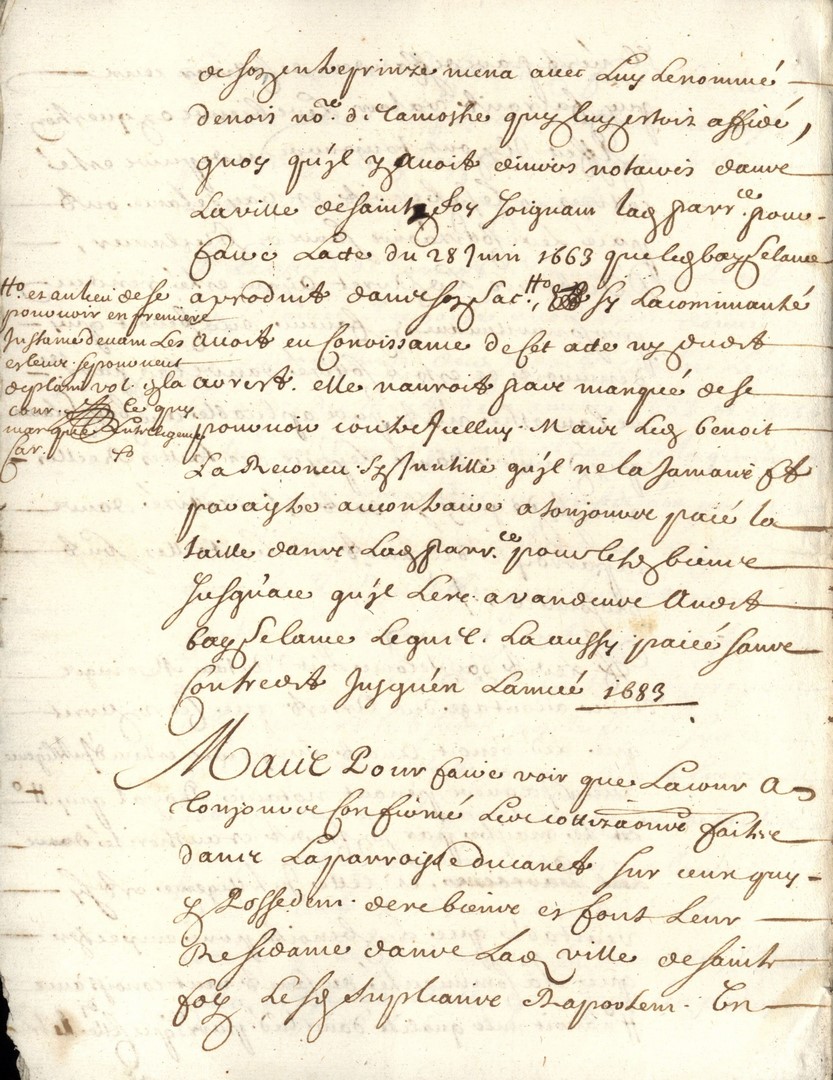 de son entreprinze mena avec Luy Le nommé
denois no.re de Lamothe quy luy estoit affidé,
quoy qu'il y avoit divers notaires dans
La ville de sainte foy joignant lad parr.ce pour
faire L'acte du 28 Juin 1663 que led bay
a produit dans son sac. Ho, sy La communauté
avoit eu connoissance de cet acte ny dud
avert. elle n'auroit pas manqué de se
pourvoir contre Icelluy. Mais Led benoit
La Reconeu sy Inutille qu'il ne la jamais
au contraire a toujours paié la
taille dans Lad parr.ce pour lesd biens
Jusqu'a ce qu'il Les a vandeus Aud
bay Lequel. La aussy paiée sans
Contredit Jusqu'en L'année 1683
Ho. et au lieu de se
pourvoir en première
Instance devant Les
esleus se pourveut
de plain vol. en la
cour. ce quy
marque Intelligence
Car. Ho
Mais Pour faire voir que La cour a
Toujours Confirmé Les cottizaons faites
dans La parroisse du canet sur ceux quy
y Possedent des biens et font Leur
Residance dans Lad ville de sainte
foy Lesd supliants Raportent. Un